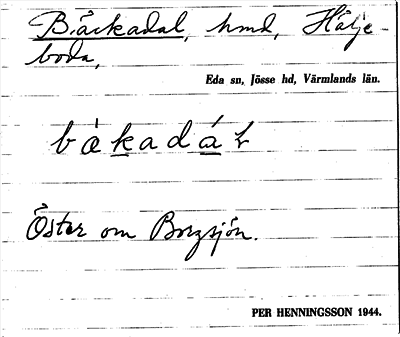 Bäckadal, hmd, Hälje-
boda,
Eda sn, Jösse hd, Värmlands län.
bæ̀kadáł
Öster om Borgsjön.
PER HENNINGSSON 1944.